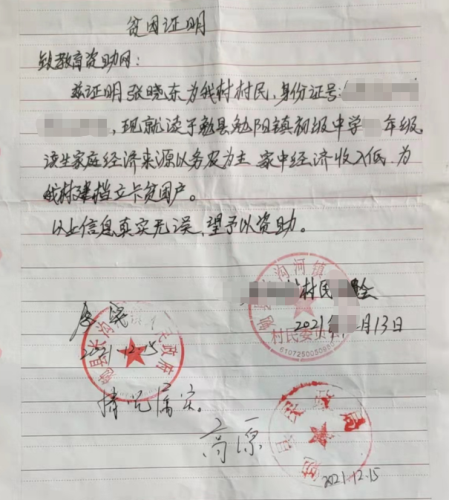 贫困证明
教育资助网：
兹证明张晓东为我村村民，身份证号：
，现就读于勉县勉阳镇初级中学 年级。
该生家庭经济来源以务农为主，家中经济收入低，为
我村建档立卡贫困户。
以上信息真实无误，望予以资助。
村民委员会
2021 13日
2021.12.15
情况属实。
高原
2021.12.15